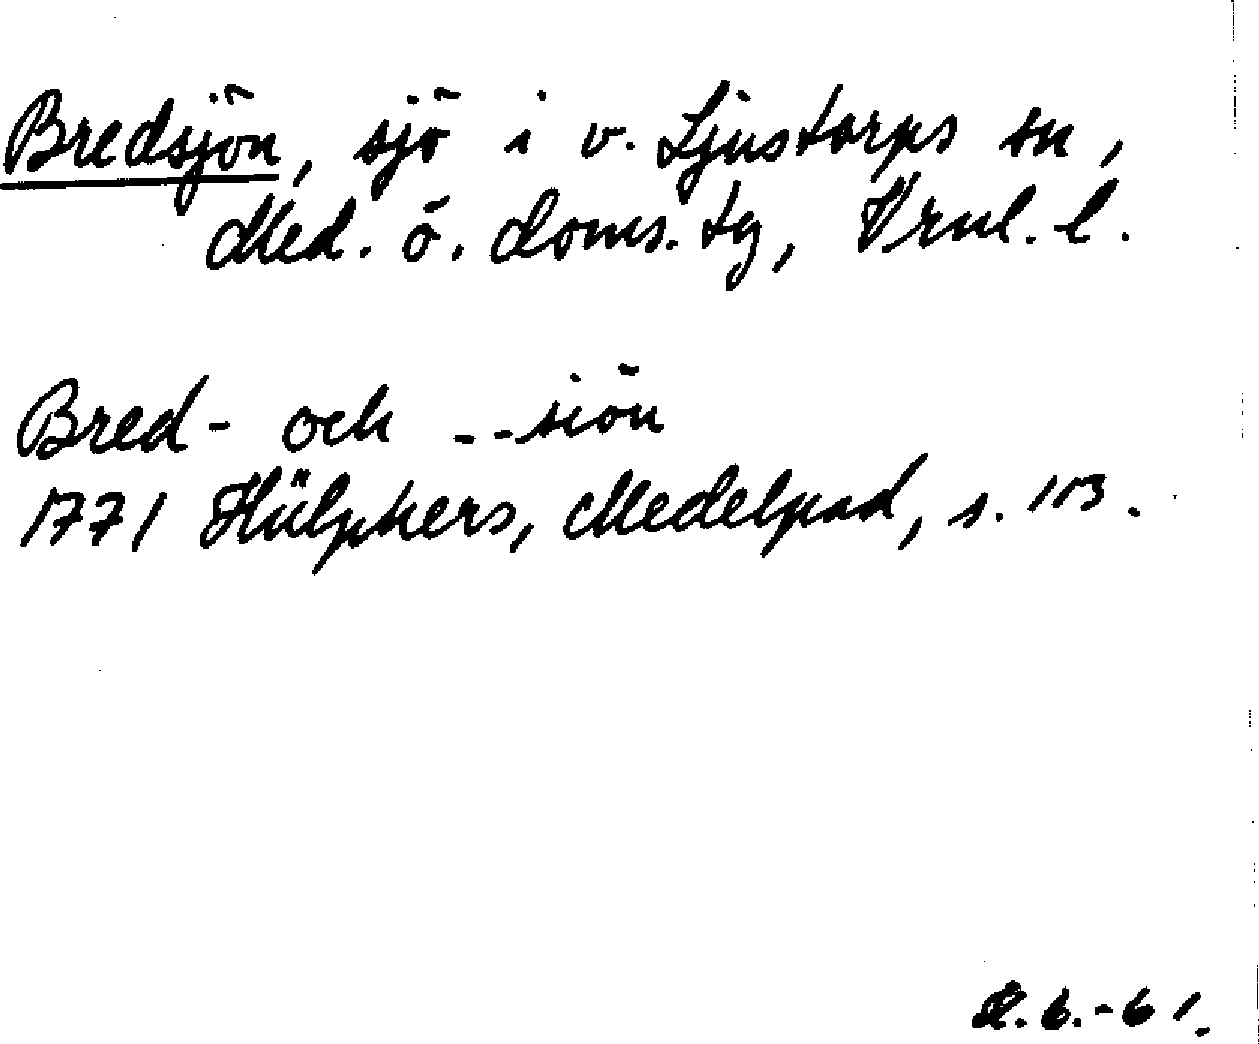 Bredsjön, sjö i v. Ljustorps sn,
Med. ö. doms. tg, Vrnl. l.
Bred- och --siön
1771 Hülphers, Medelpad, s. 113.
6.-61.